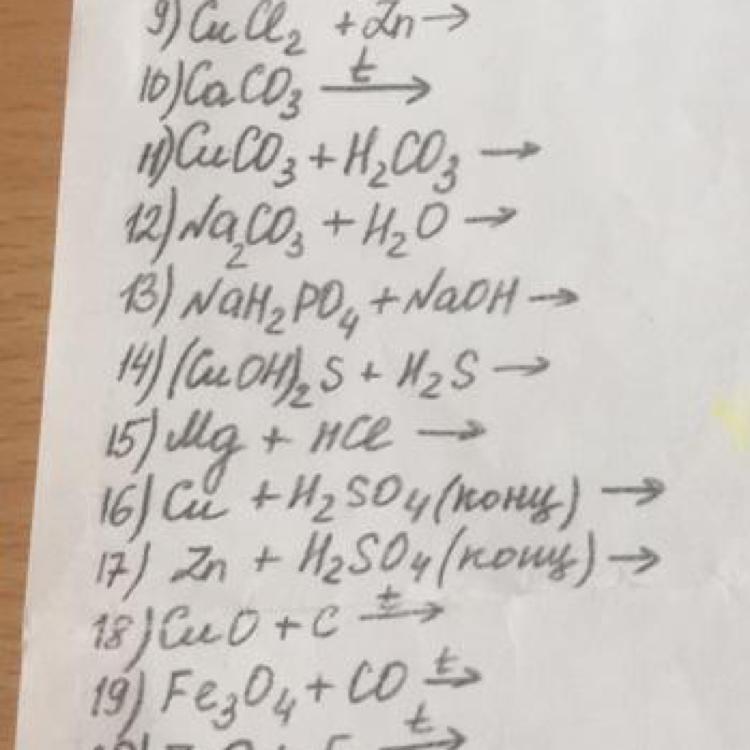 9) CuCl₂ + Zn →
10) CaCO₃ t→
11) CuCO₃ + H₂CO₃ →
12) Na₂CO₃ + H₂O →
13) NaH₂PO₄ + NaOH →
14) (CuOH)₂S + H₂S →
15) Mg + HCl →
16) Cu + H₂SO₄ (конц) →
17) Zn + H₂SO₄ (конц) →
18) CuO + C t→
19) Fe₃O₄ + CO t→
t→